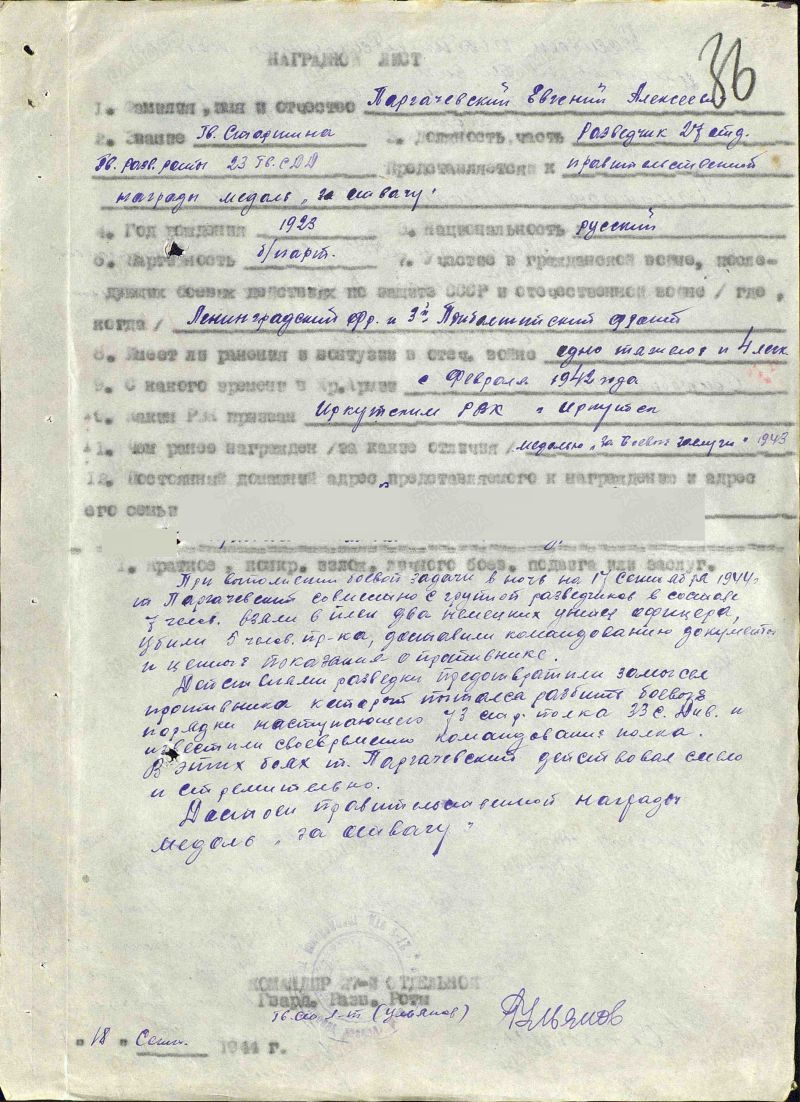 36
НАГРАДНОЙ ЛИСТ
1. Фамилия, имя и отчество Паргачевский Евгений Алексеев.
2. Звание Гв. Старшина 3. Должность, часть Разведчик 27 отд.
Гв. разв. роты 23 Гв. СДД Представляется к правительственной
награды медаль „за отвагу"
4. Год рождения 1923 5. Национальность русский
6. Партийность б/парт. 7. Участие в гражданской войне, после-
дующих боевых действиях по защите СССР и отечественной войне / где,
когда / Ленинградский фр. и 3й Прибалтийский фронт
8. Имеет ли ранения и контузии в отеч. войне одно тяжелое и 4 легк
9. С какого времени в Кр. Армии с Февраля 1942 года
10. Каким РВК призван Иркутским РВК г Иркутск
11. Чем ранее награжден /за какие отличия/ медалью „за боевые заслуги" 1943
12. Постоянный домашний адрес представляемого к награждению и адрес
его семьи
1. Краткое, конкр. излож. личного боев. подвига или заслуг.
При выполнении боевой задачи в ночь на 17 сентября 1944г
т Паргачевский совместно с группой разведчиков в составе
7 челов. взяли в плен два немецких унтер офицера,
убили 5 челов. пр-ка, доставили командованию документы
и ценные показания о противнике.
Действиями разведки предотвратили замысел
противника который пытался разбить боевой
порядки наступающего 73 стр. полка 33 с. див. и
известили своевременно командование полка.
В этих боях т. Паргачевский действовал смело
и стремительно.
Достоен правительственной награды
медаль „за отвагу"
КОМАНДИР 27-Й ОТДЕЛЬНОЙ
Гвард. Разв. Роты
Гв. ст л-т (Ульянов) Ульянов
"18" Сент. 1944 г.